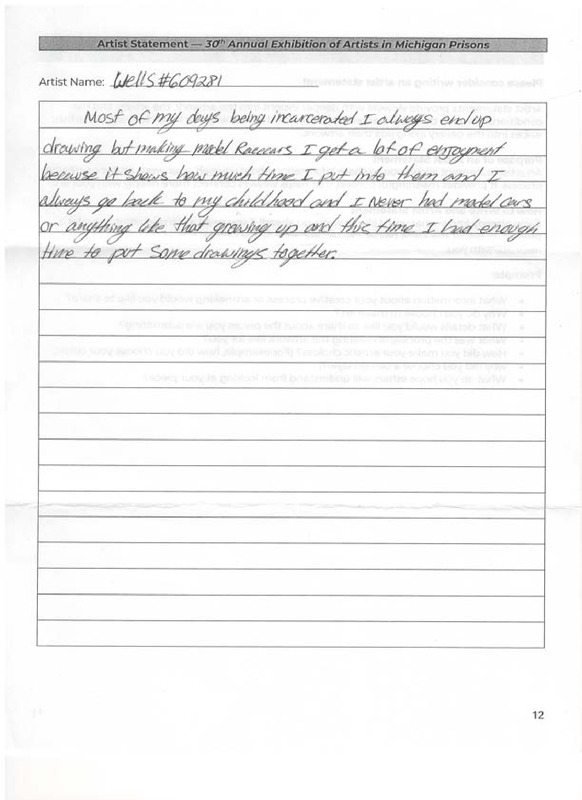 Artist Statement — 30th Annual Exhibition of Artists in Michigan Prisons
Artist Name: Wells #609281
Most of my days being incarcerated I always end up
drawing but making model Racecars I get a lot of enjoyment
because it shows how much time I put into them and I
always go back to my childhood and I Never had model cars
or anything like that growing up and this time I had enough
time to put some drawings together.
12